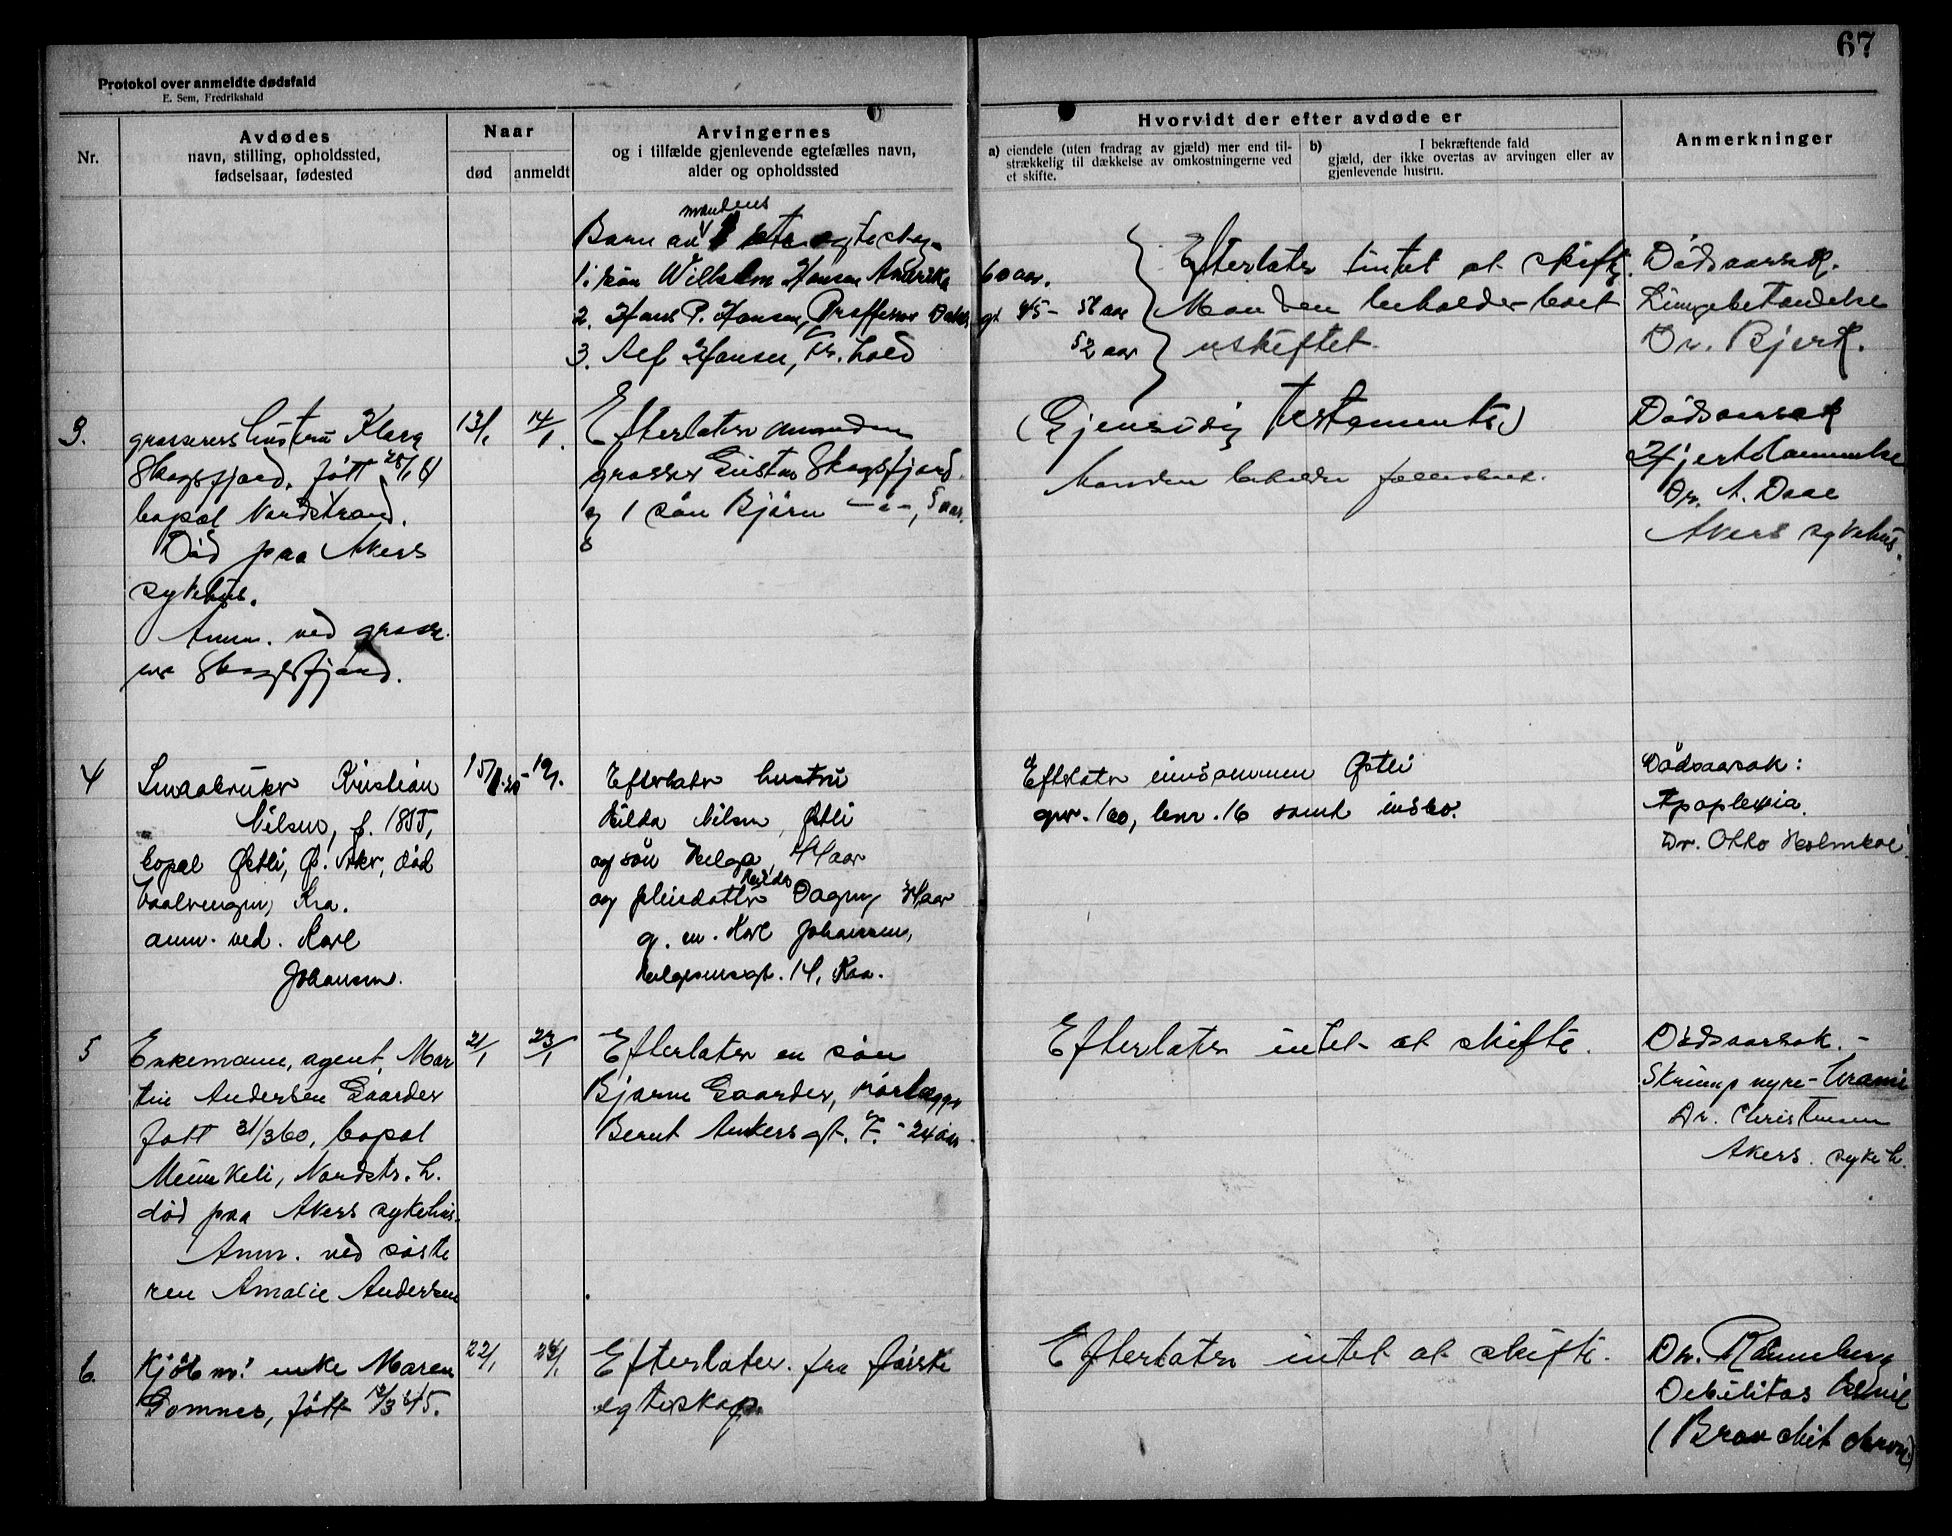 67
Protokol over anmeldte dødsfald
E. Sem, Fredrikshald
Nr.
Avdødes
navn, stilling, opholdssted,
fødselsaar, fødested
Naar
død
anmeldt
Arvingernes
og i tilfælde gjenlevende egtefælles navn,
alder og opholdssted
Hvorvidt der efter avdøde er
a) eiendele (uten fradrag av gjæld) mer end til-
strækkelig til dækkelse av omkostningerne ved
et skifte.
b) I bekræftende fald
gjæld, der ikke overtas av arvingen eller av
gjenlevende hustru.
Anmerkninger
mandens
Barn av
1. søn Wilhelm Hansen Amerika 60 aar.
2. Hans P. Hansen, 45 - 56 aar
3. Alf Hansen, 52 aar
Efterlater intet at skifte.
Manden beholder boet
uskiftet.
Dødsaarsak.
Lungebetændelse
Dr. Bjerk.
3.
grosserers hustru Klara
Skogsfjord, født
bopæl Nordstrand.
Død paa Akers
sykehus.
Anm. ved grosse-
rer Skogsfjord.
13/1
14/1.
Efterlater manden
grosser Gustav Skogsfjord
og 1 søn Bjørn -"-, 5 aar.
(Gjensidig Testamente)
Manden beholder
Dødsaarsak
Dr. A. Daae
Akers sykehus.
4
Smaabruker Kristian
Nilsen, f. 1855,
bopæl Østli, Ø. Aker, død
Vaalerengen, Kra.
anm. ved. Karl
Johansen.
15/1-20
19/1.
Efterlater hustru
Hilda Nilsen, Østli
og søn Helge, 44 aar
og pleiedatter Dagny
g. m. Karl Johansen,
Helgesensgt. 14, Kra.
Efterlater eiendommen Østli
gnr. 160, bnr. 16 samt indbo.
Dødsaarsak:
Apoplexia.
Dr. Otto Holmboe.
5
Enkemann, agent, Mar
tin Andersen Gaarder
født 31/3 60, bopæl
Munkeli, Nordstr. h.
død paa Akers sykehus.
Anm. ved søste
ren Amalie Andersen
21/1
23/1
Efterlater en søn
Bjarne Gaarder, rørlægger
Bernt Ankers gt. 7. - 24 aar -
Efterlater intet at skifte.
Dødsaarsak. -
Skrumpnyre - Urami
Dr. Christensen
Akers. sykeh.
6.
Kjøbm! enke Maren
Gomnes, født 12/3 845.
22/1
24/1
Efterlater. fra første
egteskap.
Efterlater intet at skifte.
Dr. Rønneberg
Debilitas senil
(Bronchit chron.)